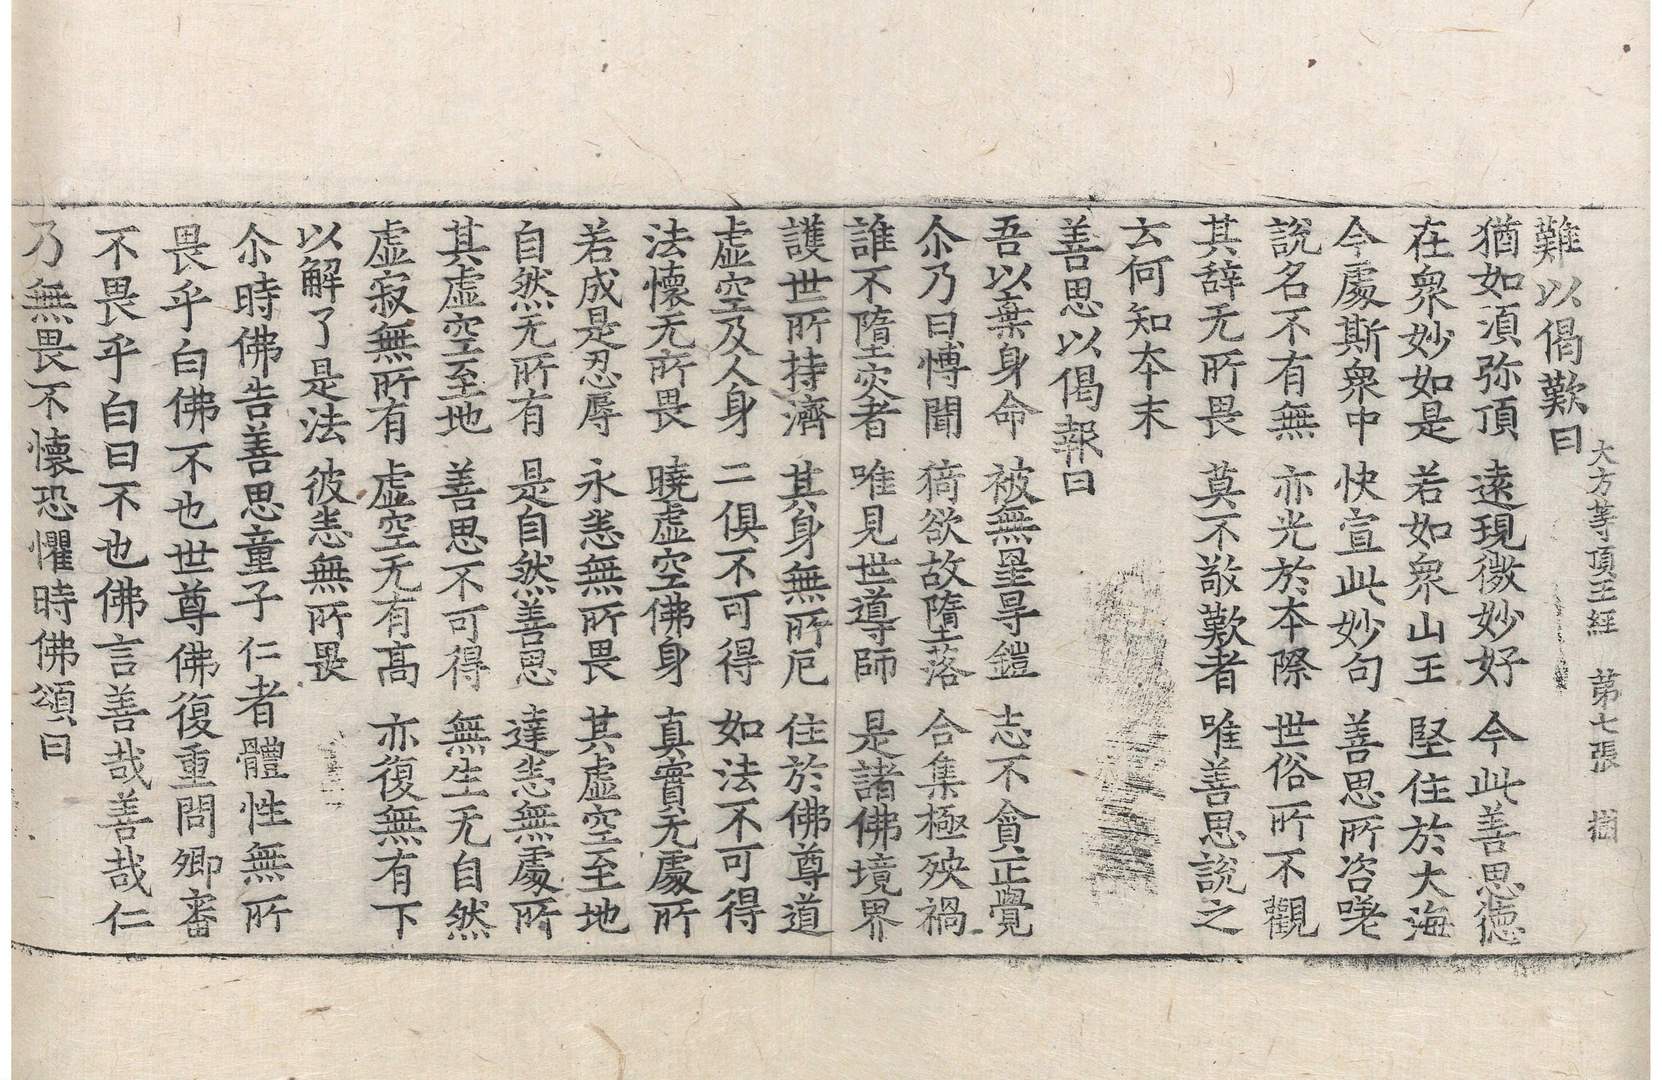 難以偈歎曰
大方等頂王經 第七張
猶如湏弥頂 遠現微妙好 今此善思德
在衆妙如是 若如衆山王 堅住於大海
今處斯衆中 快宣此妙句 善思所咨嗟
說名不有無 亦光於本際 世俗所不觀
其辞无所畏 莫不敬歎者 唯善思說之
云何知本末
善思以偈報曰
吾以棄身命 被無罣㝵鎧 志不貪正覺
尒乃曰愽聞 猗欲故墮落 合集極殃禍
誰不墮灾者 唯見世導師 是諸佛境界
護世所持濟 其身無所厄 住於佛尊道
虛空及人身 二俱不可得 如法不可得
法懷无所畏 曉虛空佛身 真實无處所
若成是忍辱 永恙無所畏 其虛空至地
自然无所有 是自然善思 達恙無處所
其虛空至地 善思不可得 無生无自然
虛寂無所有 虛空无有高 亦復無有下
以解了是法 彼恙無所畏
尒時佛告善思童子仁者體性無所
畏乎白佛不也世尊佛復重問卿審
不畏乎白曰不也佛言善哉善哉仁
乃無畏不懷恐懼時佛頌曰